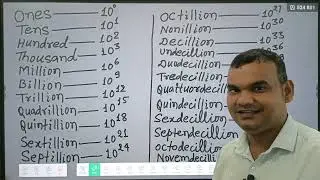 Ones — 10⁰
Tens — 10¹
Hundred — 10²
Thousand — 10³
Million — 10⁶
Billion — 10⁹
Trillion — 10¹²
Quadrillion — 10¹⁵
Quintillion — 10¹⁸
Sextillion — 10²¹
Septillion — 10²⁴
Octillion — 10²⁷
Nonillion — 10³⁰
Decillion — 10³³
Undecillion — 10³⁶
Tredecillion
Quindecillion
Sexdecillion
Septendecillion
octodecillion
Novemdecillion